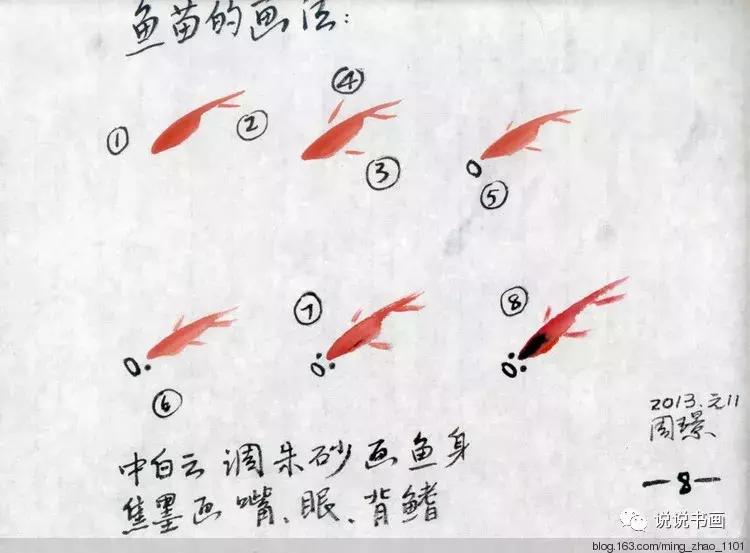 鱼苗的画法:
① ② ④ ③ ⑤
⑥ ⑦ ⑧
2013.元11
周璟
中白云调朱砂画鱼身
焦墨画嘴、眼、背鳍
-8-
说说书画
blog.163.com/ming_zhao_1101